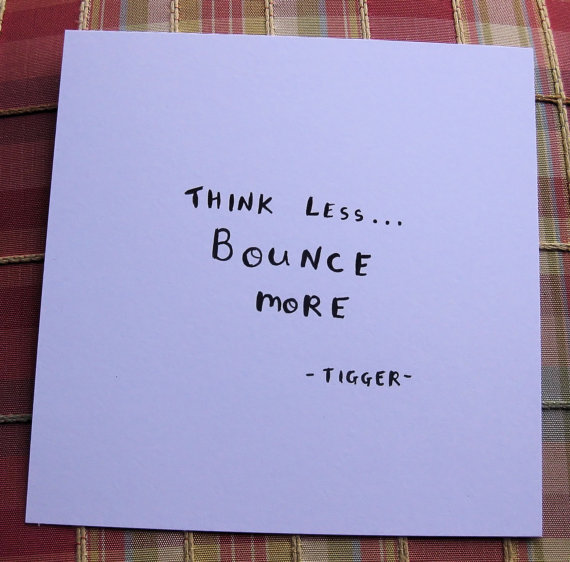 THINK LESS...
BOUNCE
MORE
-TIGGER-